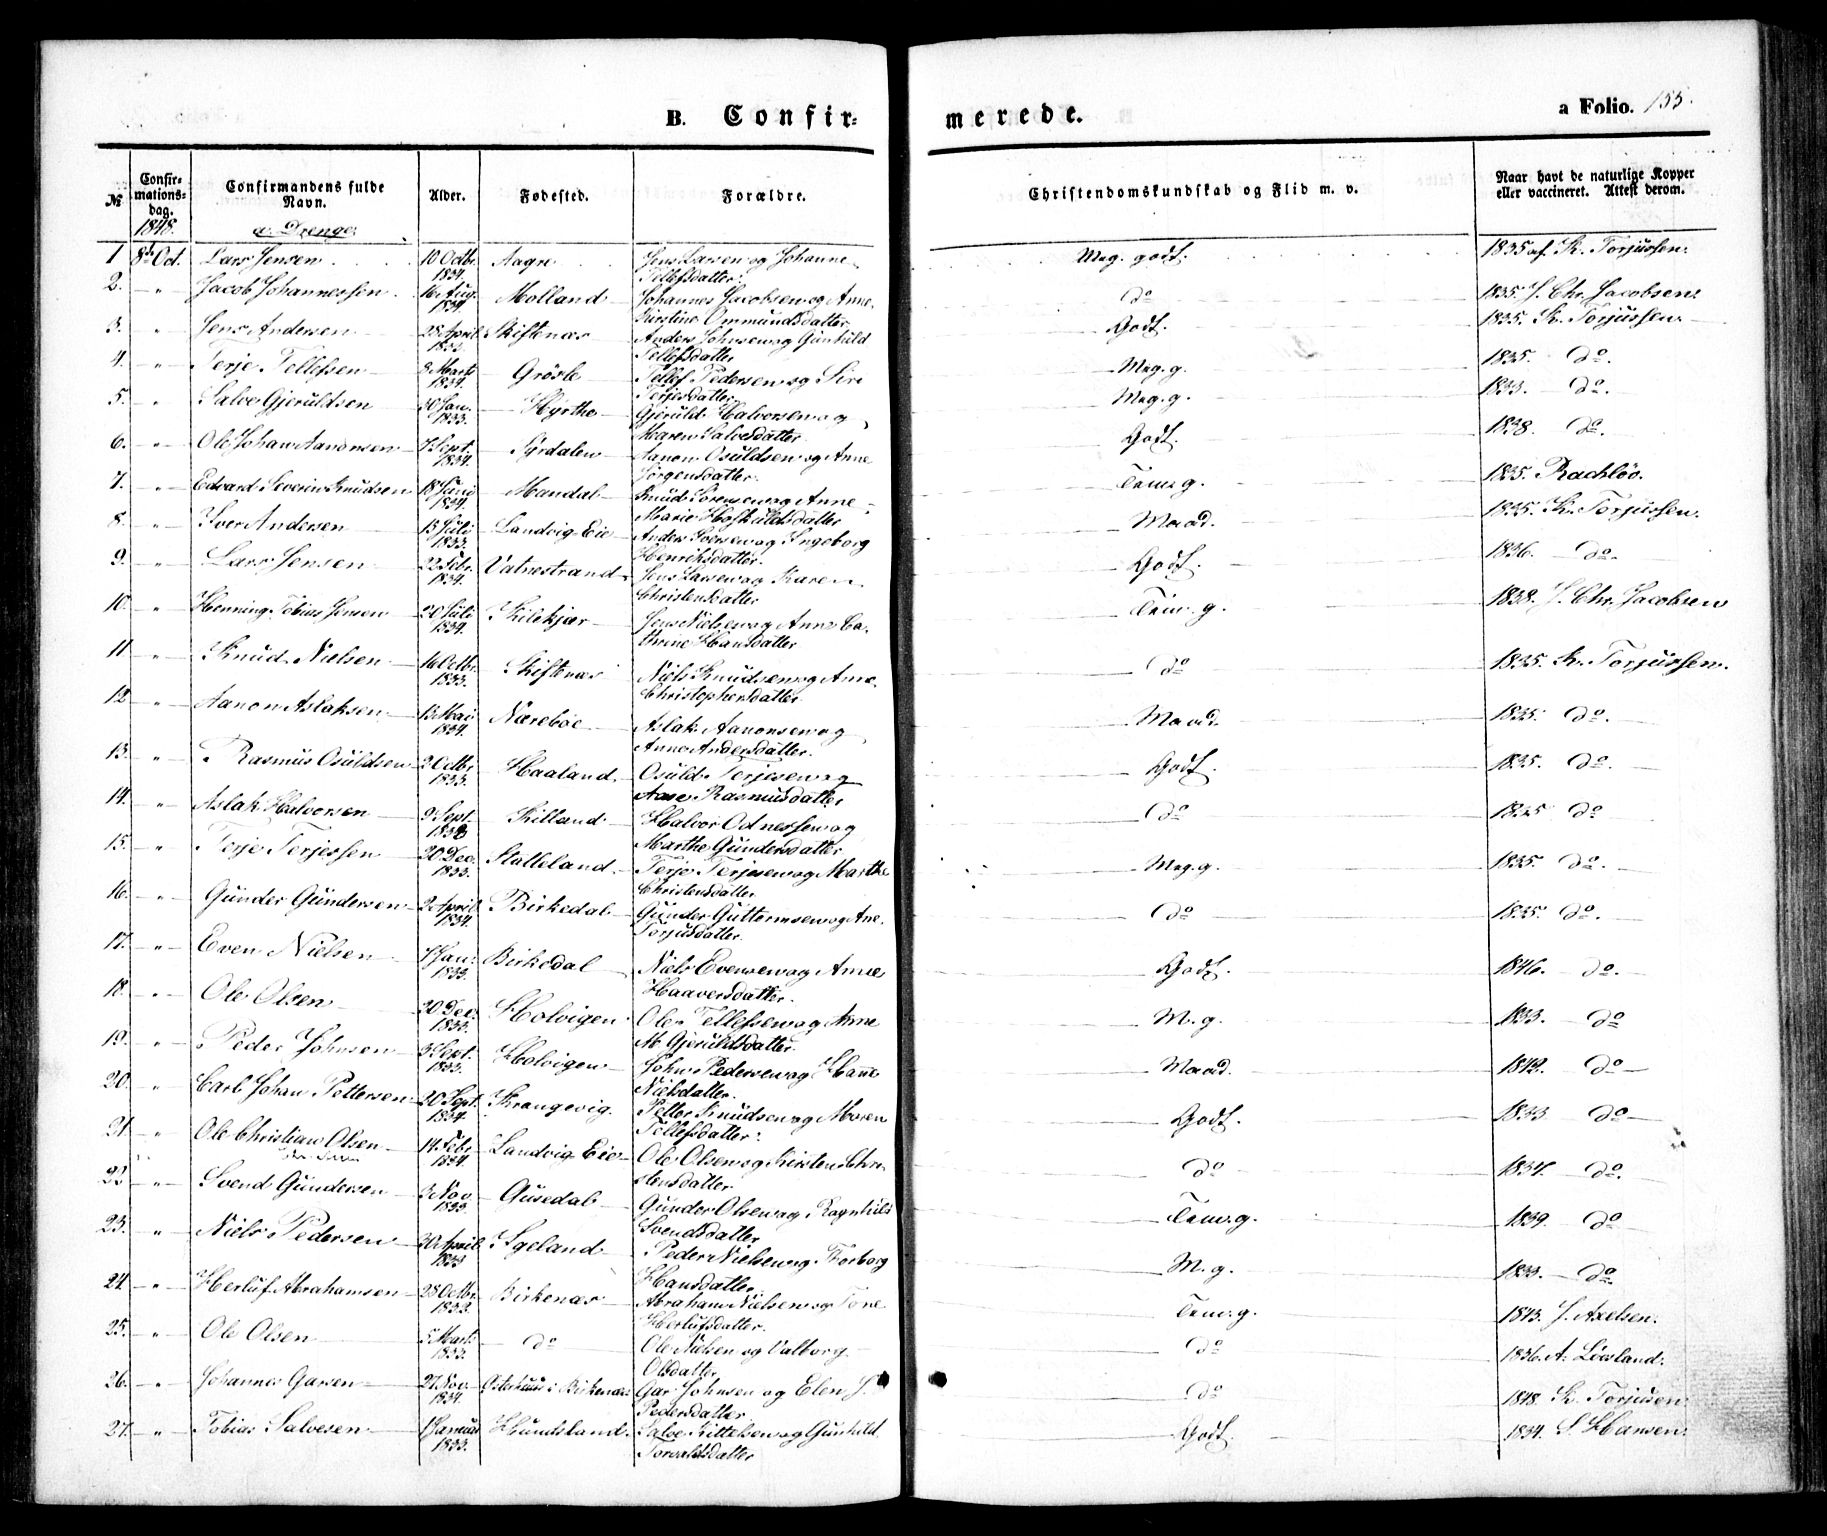 B. Confir=
merede.
a Folio. 155.
№
Confir=mations=dag.
Confirmandens fulde Navn.
Alder.
Fødested.
Forældre.
Christendomskundskab og Flid m. v.
Naar havt de naturlige Kopper eller vaccineret. Attest derom.
1848.
a. Drenge
1 8de Oct. Lars Jensen 10 Octbr. 1834. Aagre Jens Larsen og Johanne Tellefsdatter. Meg. godt. 1835 af K. Torjussen.
2. " Jacob Johannessen 16 Aug. 1834. Molland Johannes Jacobsen og Anne Kirstine Ommundsdatter do 1835. J. Chr. Jacobsen.
3. " Jens Andersen 28 April Skiftenæs Anders Johnsen og Gunhild Tellefsdatter Godt. 1835. K. Torjussen.
4. " Terje Tellefsen 8 Marts 1834. Grösle Tellef Pedersen og Siri Terjesdatter Meg. g. 1835. do.
5. " Salve Gjeruldsen 30 Jan. 1833. Hyrthe Gjeruld Halvorsen og Maren Salvesdatter Meg. g. 1833. do.
6. " Ole Johan Aanonsen 7 Sept. 1834. Syrdalen Aanon Osuldsen og Anne Jörgensdatter. Godt. 1838. do.
7. " Edvard Severin Knudsen 18 Juni 1834. Mandal Knud Sörensen og Anne Marie Hoskuldsdatter Tem. g. 1835. Rachløv.
8. " Iver Andersen 13 Juli 1833. Landvig Eie Anders Iversen og Ingeborg Henriksdatter. Maad. 1835. K. Torjussen.
9. " Lars Jensen 22 Febr. 1834. Vatnestrand Jens Larsen og Karen Christensdatter Godt. 1836. do.
10. " Henning Tobias Jensen 20 Juli 1834. Kilekjær Jens Nielsen og Anne Cathrine Hansdatter Tem. g. 1838. J. Chr. Jacobsen
11 " Knud Nielsen 16 Octbr. 1833. Skiftenæs Niels Knudsen og Anne Christophersdatter. do 1835. K. Torjussen.
12 " Aanon Aslaksen 13 Mai 1834. Nærebøe Aslak Aanonsen og Anne Andersdatter. Maad. 1835. do.
13. " Rasmus Osuldsen 2 Octbr. 1833. Haaland Osuld Terjesen og Aase Rasmusdatter Godt. 1835. do.
14. " Aslak Halvorsen 9 Sept. Killand Halvor Odnessen og Marthe Gundersdatter do 1835 do
15. " Terje Terjessen 20 Dec. 1833. Stalleland Terje Terjesen og Marthe Christensdatter Meg. g. 1835. do.
16. " Gunder Gundersen 2 April 1834. Birkedal Gunder Guttormsen og Ane Torjusdatter. do 1835. do.
17. " Even Nielsen 1 Jan. 1833. Birkedal Niels Evensen og Anne Haaversdatter. Godt. 1846. do.
18. " Ole Olsen 20 Dec. 1833. Holvigen Ole Tellefsen og Anne M Gjeruldsdatter. M. g. 1833. do
19. " Peder Johnsen 3 Sept. 1833. Holvigen John Pedersen og Hanne Nielsdatter. Maad. 1842. do
20. " Carl Johan Pettersen 20 Sept. 1834 Krangevig. Petter Knudsen og Maren Tellefsdatter. Godt. 1833 do
21. " Ole Christian Olsen 14 Febr. 1834. Landvig Eie Ole Olsen og Kirsten Christensdatter do 1834. do.
22 " Svend Gundersen 3 Nov. 1833 Gusedal Gunder Olsen og Ragnhild Svendsdatter Tem. g. 1839. do
23. " Niels Pedersen 30 April 1833 Igeland Peder Nielsen og Thorborg Hansdatter M. g. 1833. do
24. " Herluf Abrahamsen 28 Octbr. 1833. Birkenæs Abraham Nielsen og Tone Herlufsdatter. Tem. g. 1843. J. Axelsen.
25. " Ole Olsen 5 Mart. 1833. do Ole Nielsen og Valborg Olsdatter do 1836. A. Løvland.
26. " Johannes Garsen 27 Nov. 1834. Østerhuus i Birkenæs Gar Johnsen og Elen J. Pedersdatter do 1848. K. Torjusen.
27. " Tobias Salvesen 1 Januar 1833. Hundsland. Salve Kittelsen og Gunhild Torvaldsdatter Godt. 1834. S. Hansen.